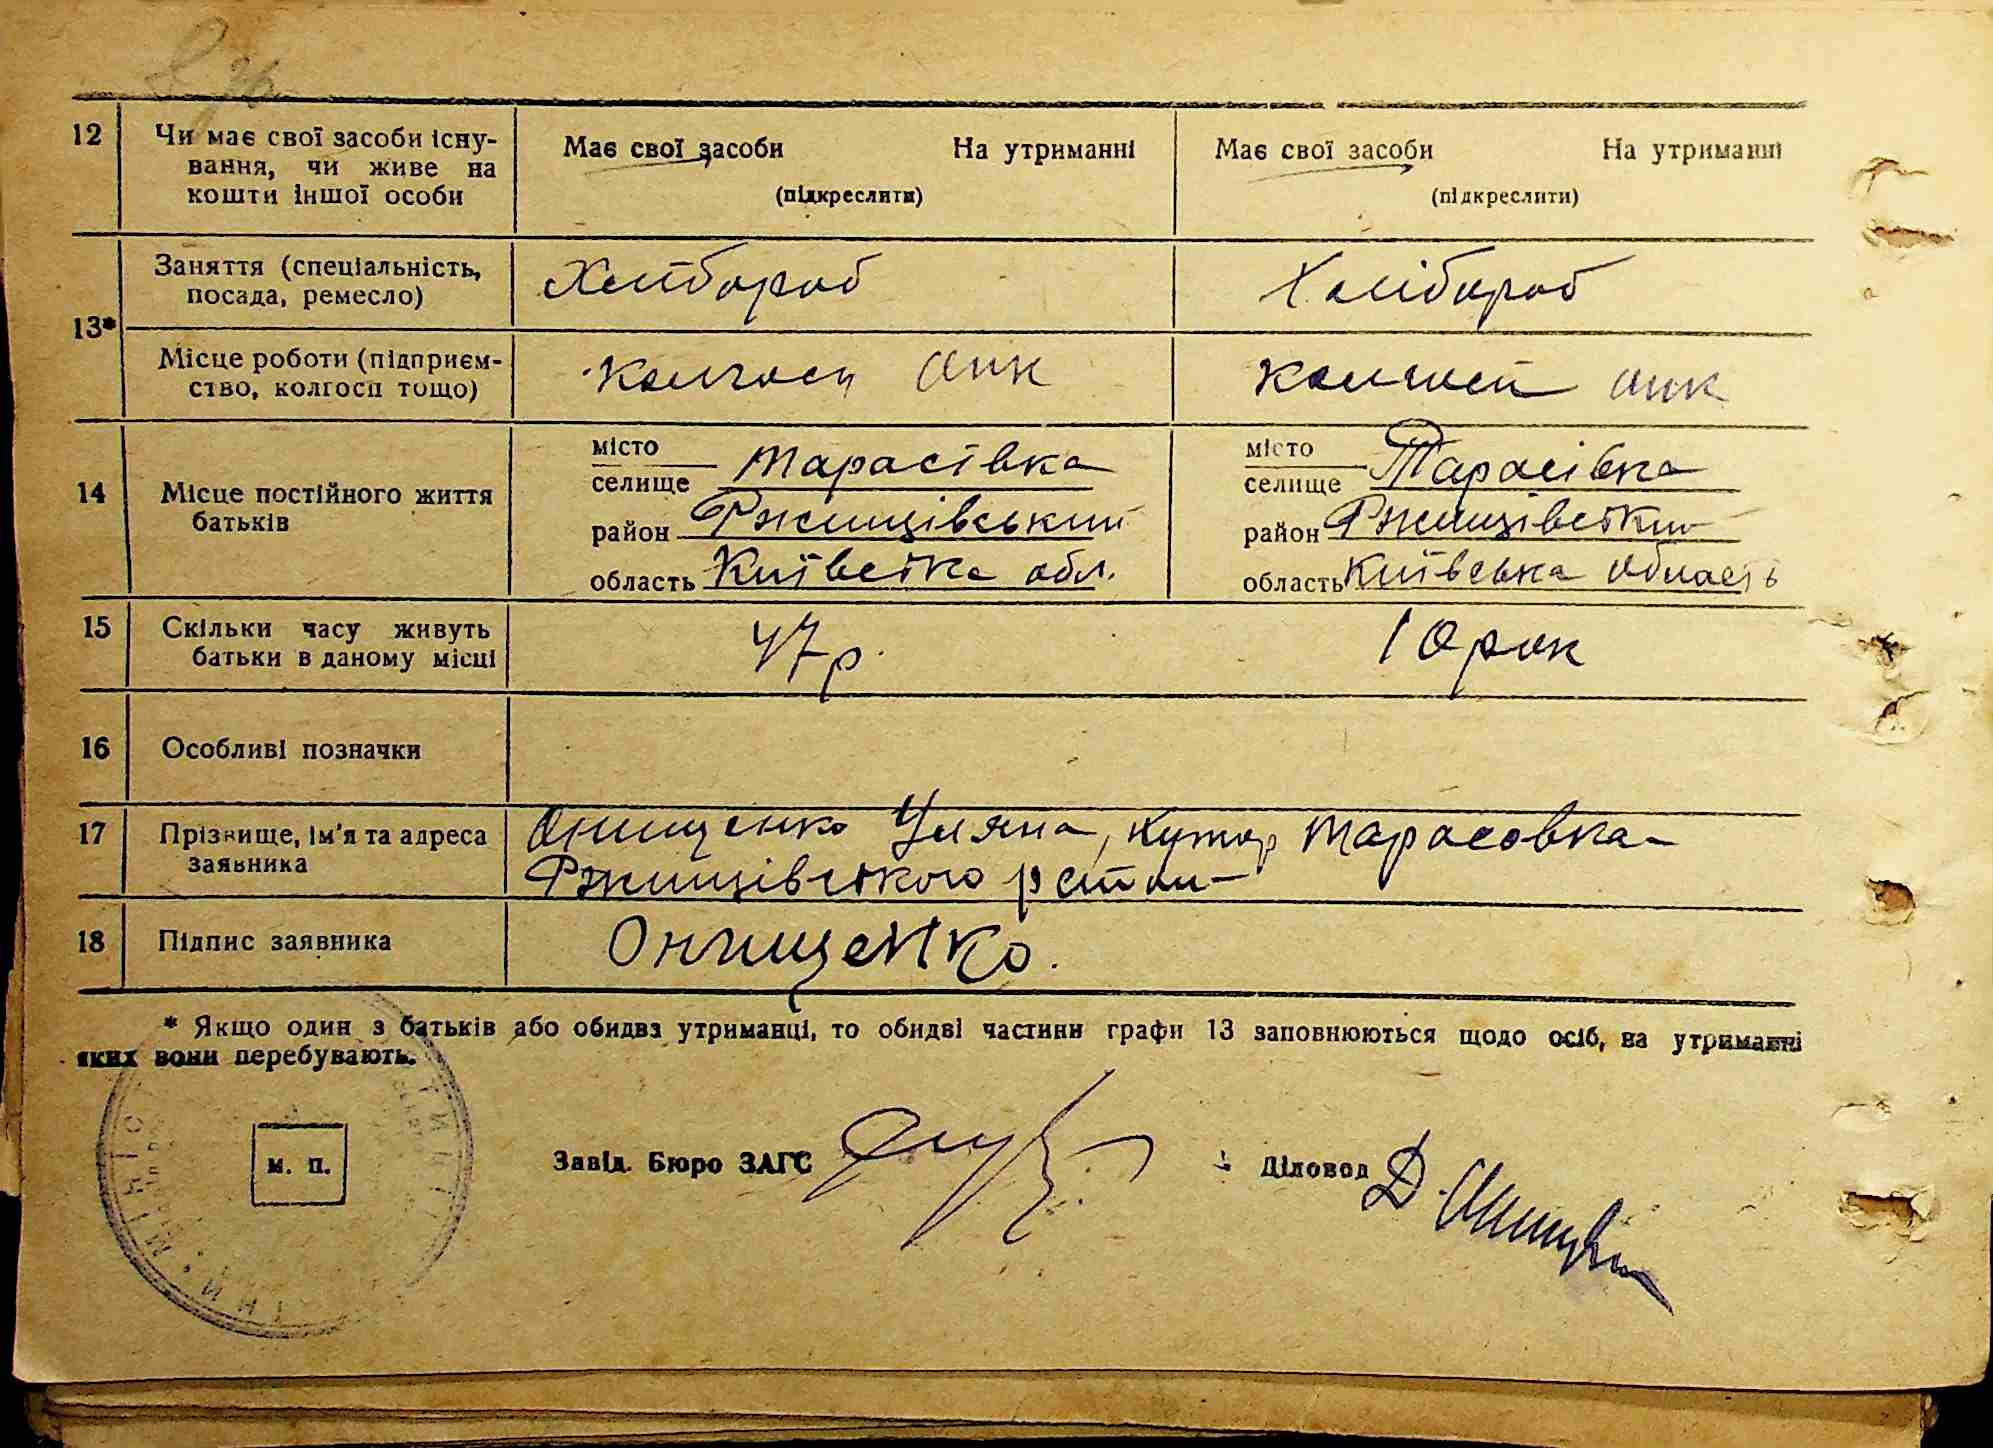 12 Чи має свої засоби існу-
вання, чи живе на
кошти іншої особи
Має свої засоби На утриманні
(підкреслити)
Має свої засоби На утриманні
(підкреслити)
13*
Заняття (спеціальність,
посада, ремесло)
Хлібороб
Хлібороб
Місце роботи (підприєм-
ство, колгосп тощо)
колгосп
колгосп
14 Місце постійного життя
батьків
місто
селище Тарасівка
район Ржищівський
область Київська обл.
місто
селище Тарасівка
район Ржищівський
область Київська область
15 Скільки часу живуть
батьки в даному місці
47р.
10 рок
16 Особливі позначки
17 Прізвище, ім'я та адреса
заявника
Онищенко Уляна, хутор Тарасовка
Ржищівського
18 Підпис заявника
Онищенко.
* Якщо один з батьків або обидва утриманці, то обидві частини графи 13 заповнюються щодо осіб, на утриманні
яких вони перебувають.
м. п.
Завід. Бюро ЗАГС
Діловод